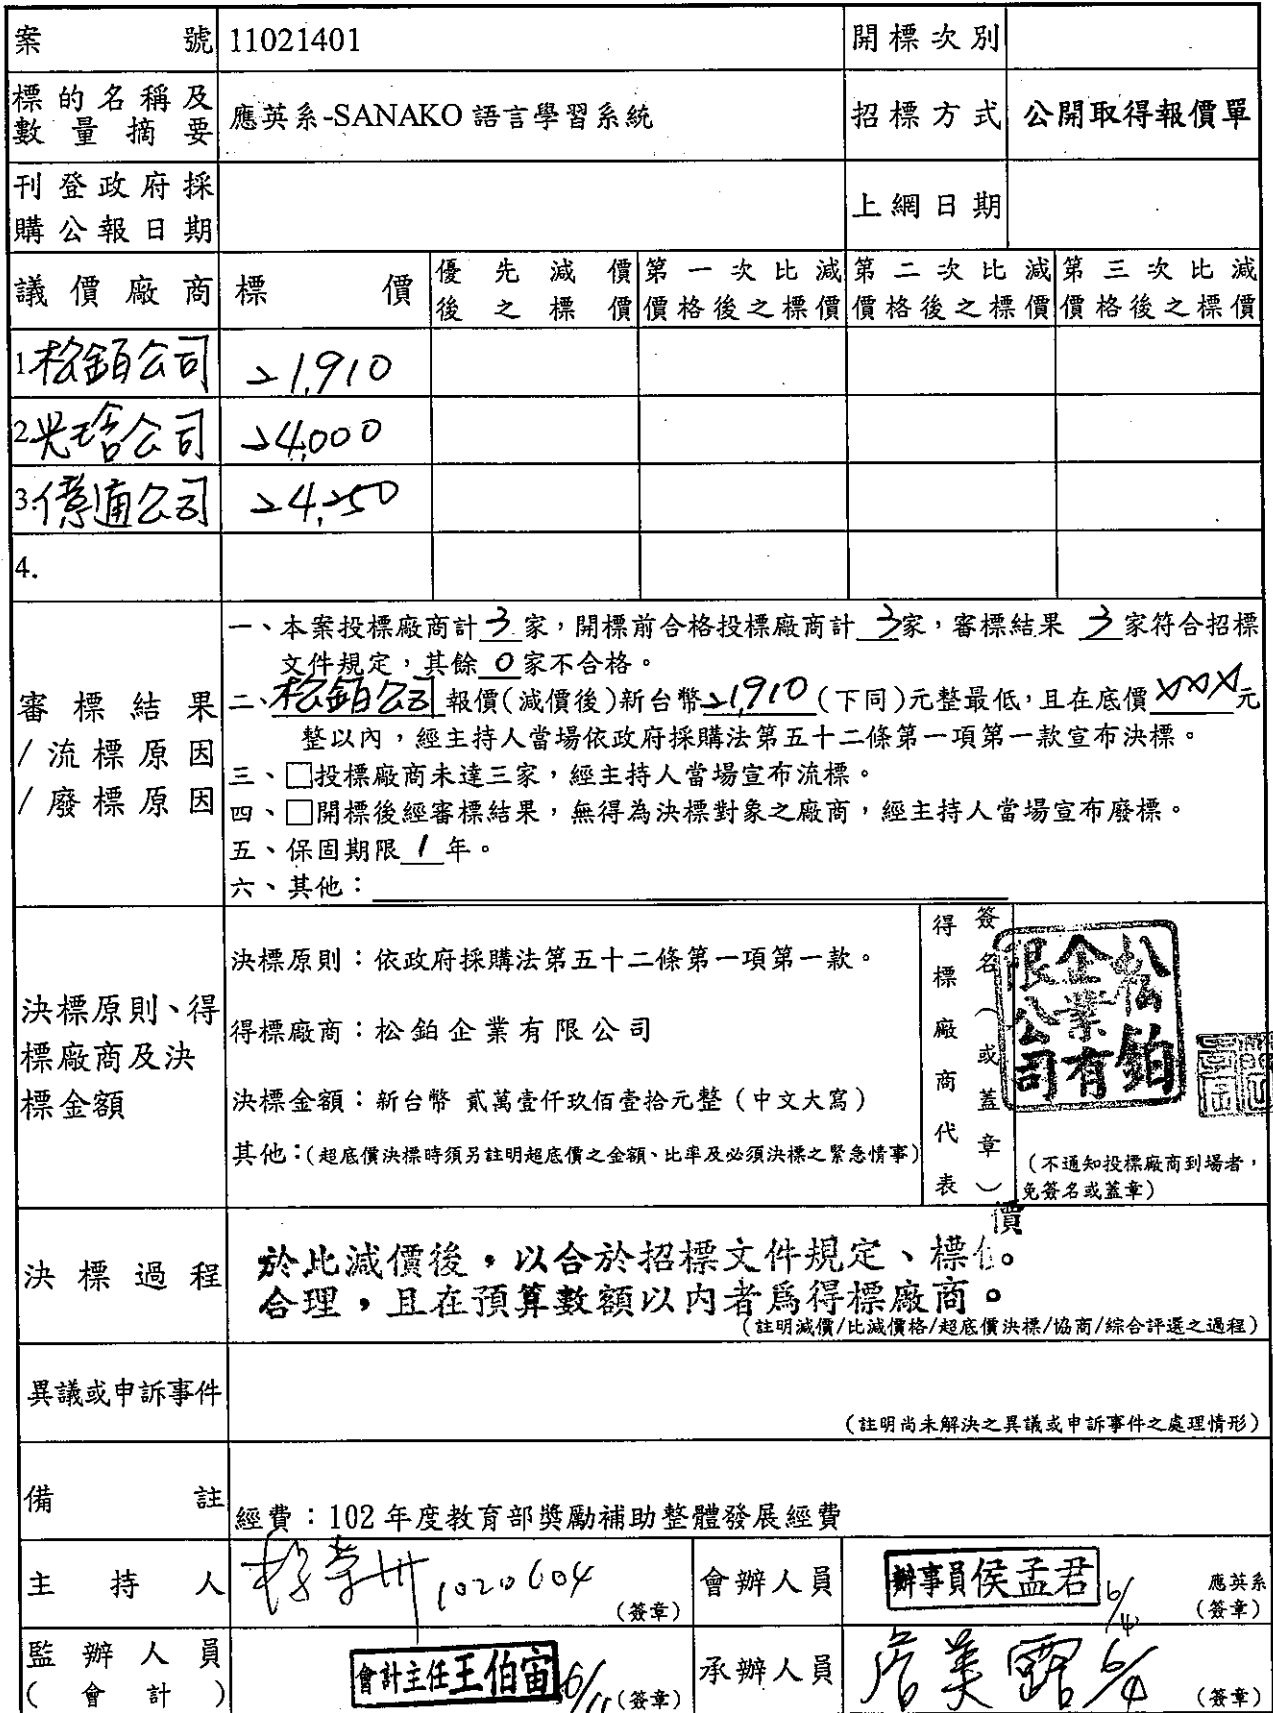 案號 11021401 開標次別
標的名稱及數量摘要 應英系-SANAKO 語言學習系統 招標方式 公開取得報價單
刊登政府採購公報日期 上網日期
議價廠商 標價 優先減價後之標價 第一次比減價格後之標價 第二次比減價格後之標價 第三次比減價格後之標價
1.松鉑公司 21,910
2.光琀公司 24,000
3.億通公司 24,250
4.
審標結果/流標原因/廢標原因
一、本案投標廠商計 3 家，開標前合格投標廠商計 3 家，審標結果 3 家符合招標
文件規定，其餘 0 家不合格。
二、松鉑公司 報價(減價後)新台幣 21,910 (下同)元整最低，且在底價 XXX 元
整以內，經主持人當場依政府採購法第五十二條第一項第一款宣布決標。
三、□投標廠商未達三家，經主持人當場宣布流標。
四、□開標後經審標結果，無得為決標對象之廠商，經主持人當場宣布廢標。
五、保固期限 1 年。
六、其他：
決標原則、得標廠商及決標金額
決標原則：依政府採購法第五十二條第一項第一款。
得標廠商：松鉑企業有限公司
決標金額：新台幣 貳萬壹仟玖佰壹拾元整（中文大寫）
其他：(超底價決標時須另註明超底價之金額、比率及必須決標之緊急情事)
得標廠商代表
簽名（或蓋章）
松鉑企業有限公司
（不通知投標廠商到場者，
免簽名或蓋章）
決標過程
於比減價後，以合於招標文件規定、標價
合理，且在預算數額以內者為得標廠商。
（註明減價/比減價格/超底價決標/協商/綜合評選之過程）
異議或申訴事件
（註明尚未解決之異議或申訴事件之處理情形）
備註 經費：102 年度教育部獎勵補助整體發展經費
主持人 1020604 （簽章） 會辦人員 辦事員侯孟君 6/4 應英系（簽章）
監辦人員（會計） 會計主任王伯宙 （簽章） 承辦人員 詹美露 6/4 （簽章）